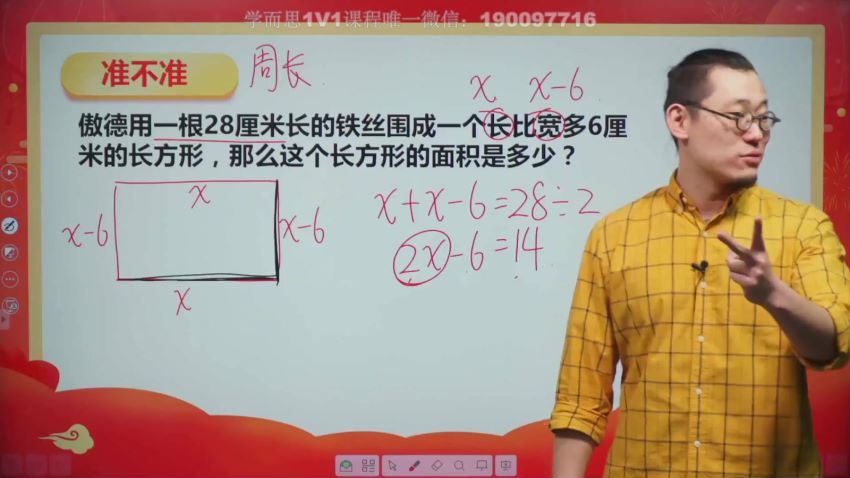 学而思1V1课程唯一微信：190097716
准不准
周长
x x-6
傲德用一根28厘米长的铁丝围成一个长比宽多6厘
米的长方形，那么这个长方形的面积是多少？
x
x-6
x-6
x
x+x-6=28÷2
2x-6=14